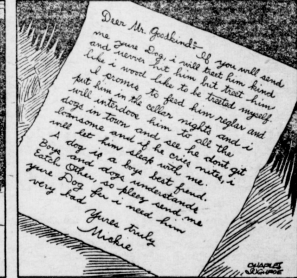 Deer Mr. Goodkind:- If you will send
me yure Dog, i will treet him kind
and never hit him but treet him
like i wood like to be treated myself.
I promis to feed him regler and
put him in the cellar nights and i
will interdooce him to all the
dogs in town and see he dont git
lonesome and if he cries nites i
will let him sleep with me.
A dog is a boys best frend.
Boys and dogs understands
eatch other, so pleez send me
yure Dog fer i need him
very bad
Yures truly
Mickie
CHARLES
SUGHROE